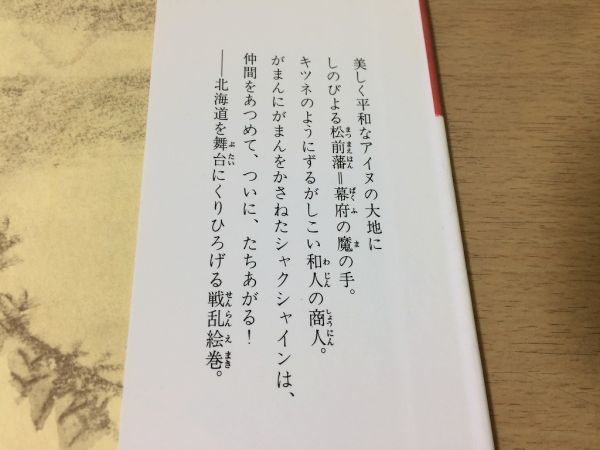 美しく平和なアイヌの大地に
しのびよる松前藩＝幕府の魔の手。
キツネのようにずるがしこい和人の商人。
がまんにがまんをかさねたシャクシャインは、
仲間をあつめて、ついに、たちあがる！
――北海道を舞台にくりひろげる戦乱絵巻。